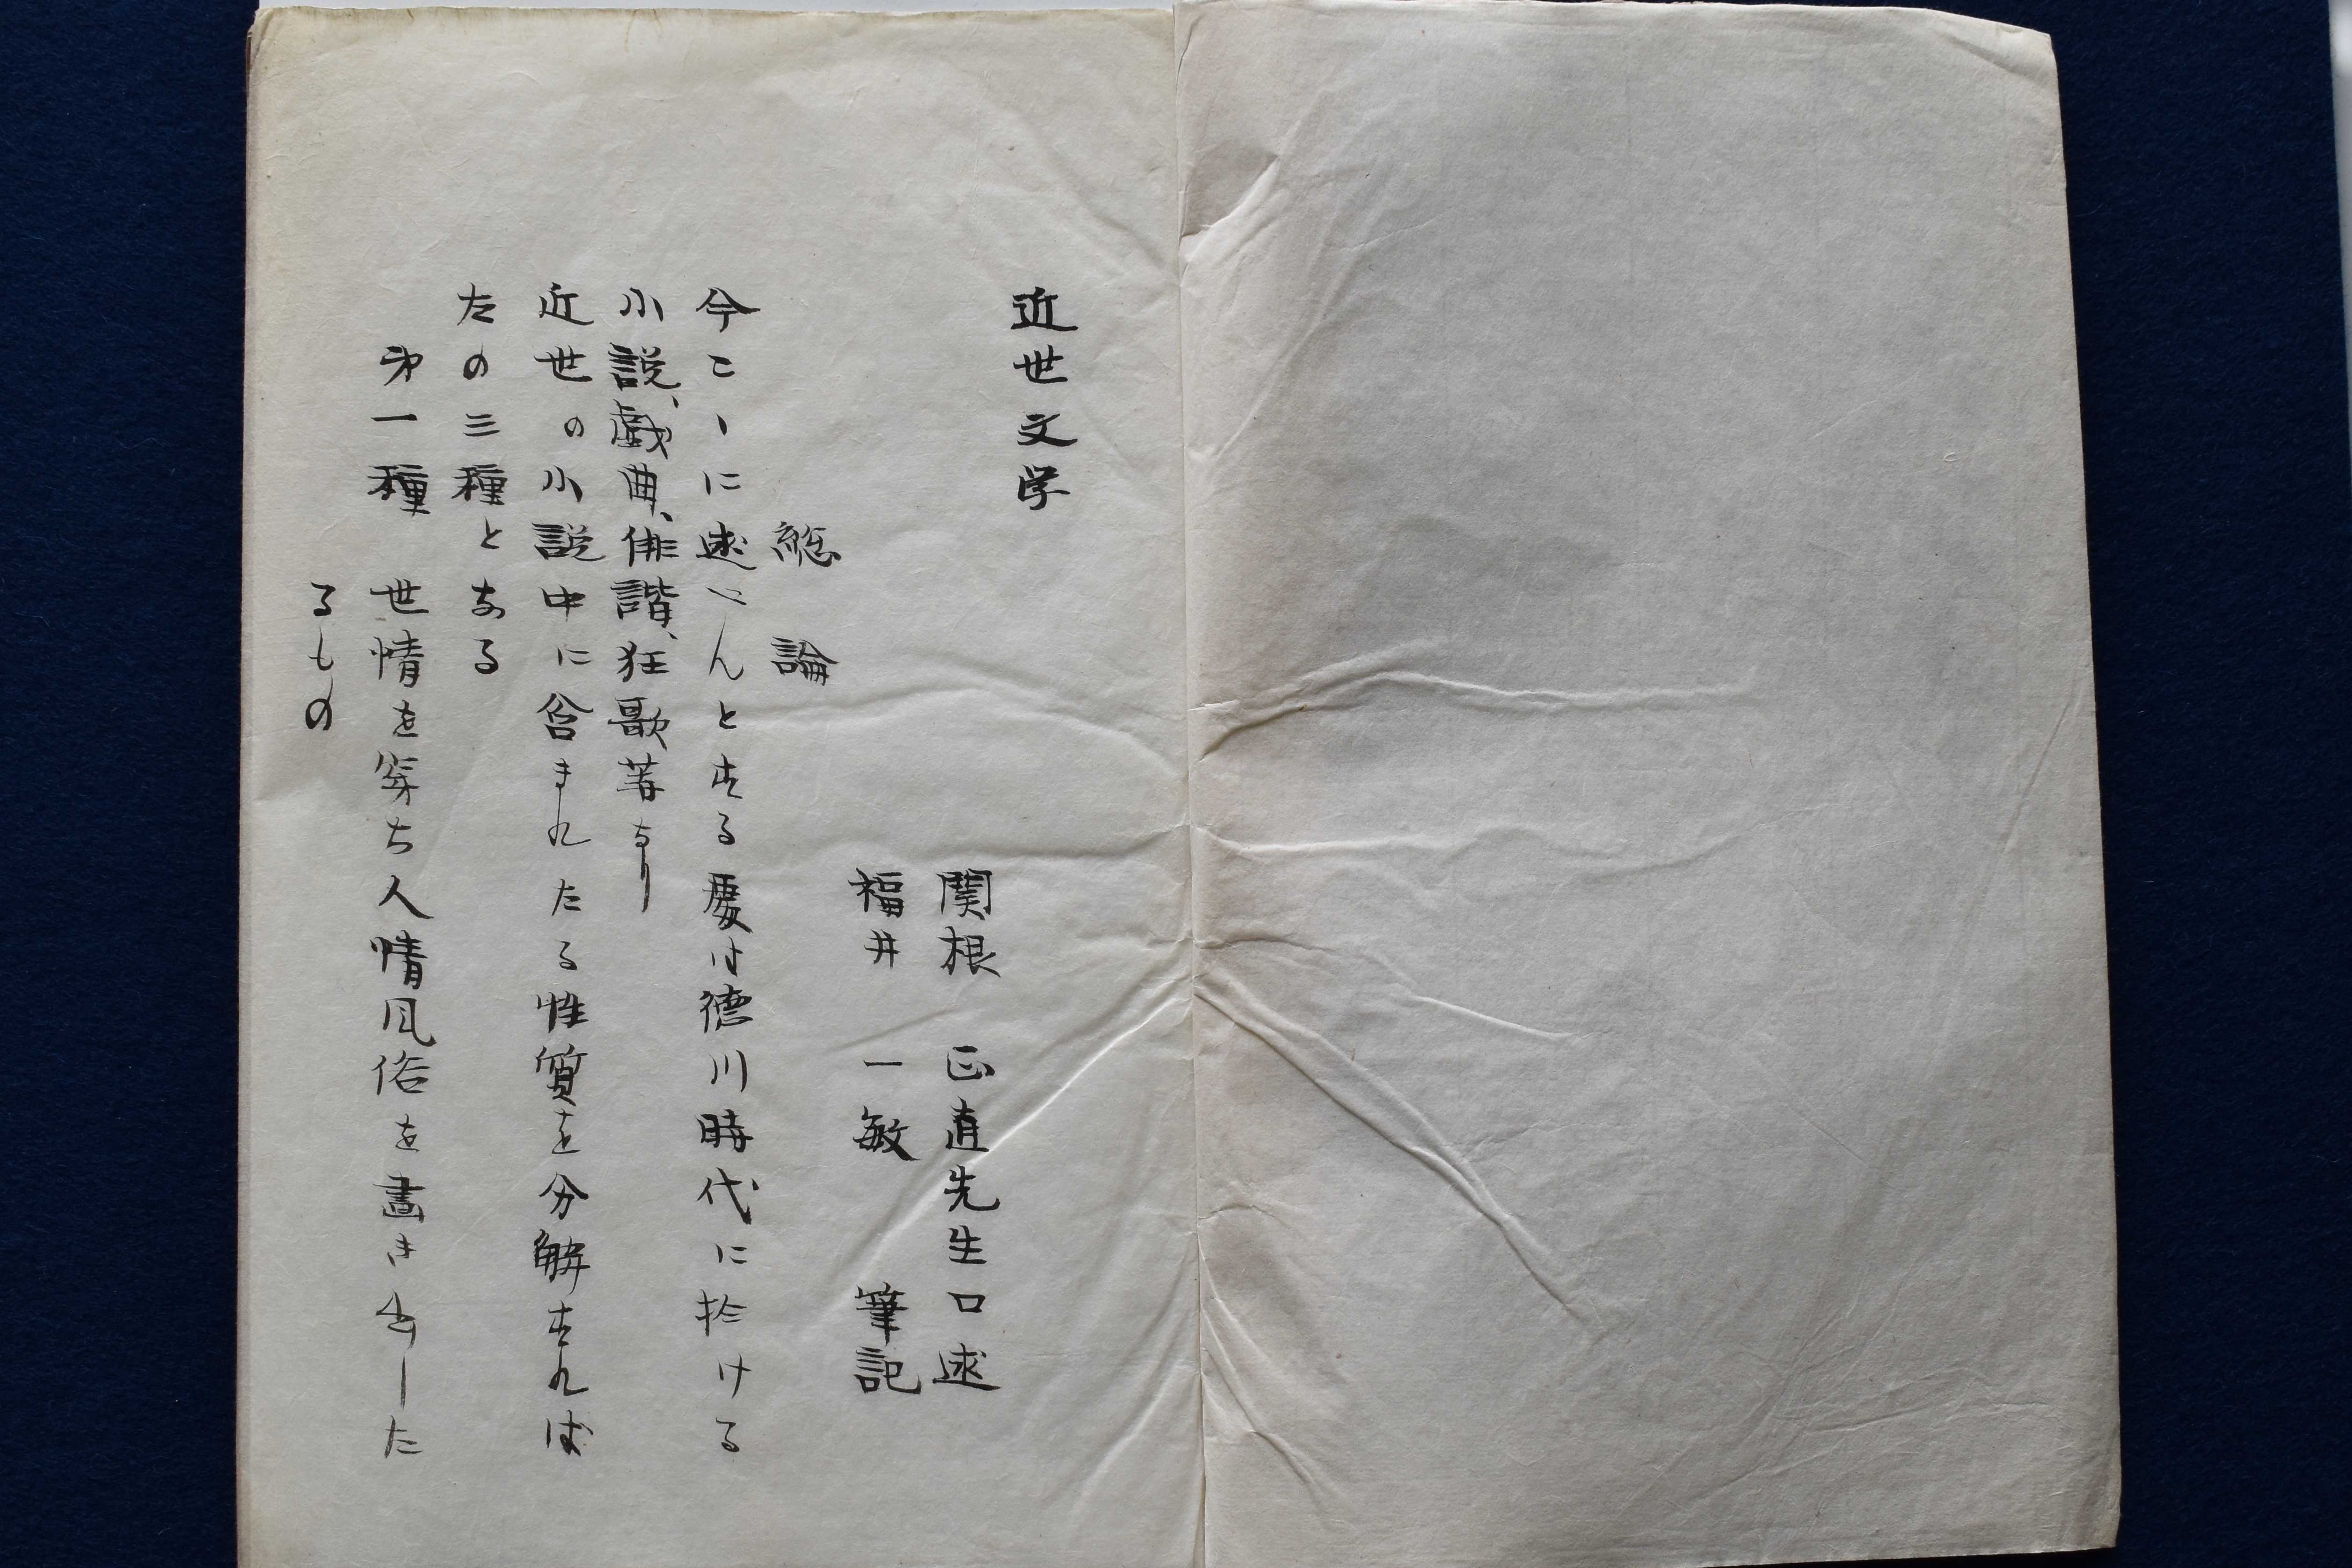 近世文学
関根 正直先生口述
福井 一敏 筆記
総 論
今こゝに述べんとする處は德川時代に於ける
小説、戯曲、俳諧、狂歌等なり
近世の小説中に含まれたる性質を分解すれば
左の三種となる
㐧一種 世情を穿ち人情風俗を畫き出した
るもの